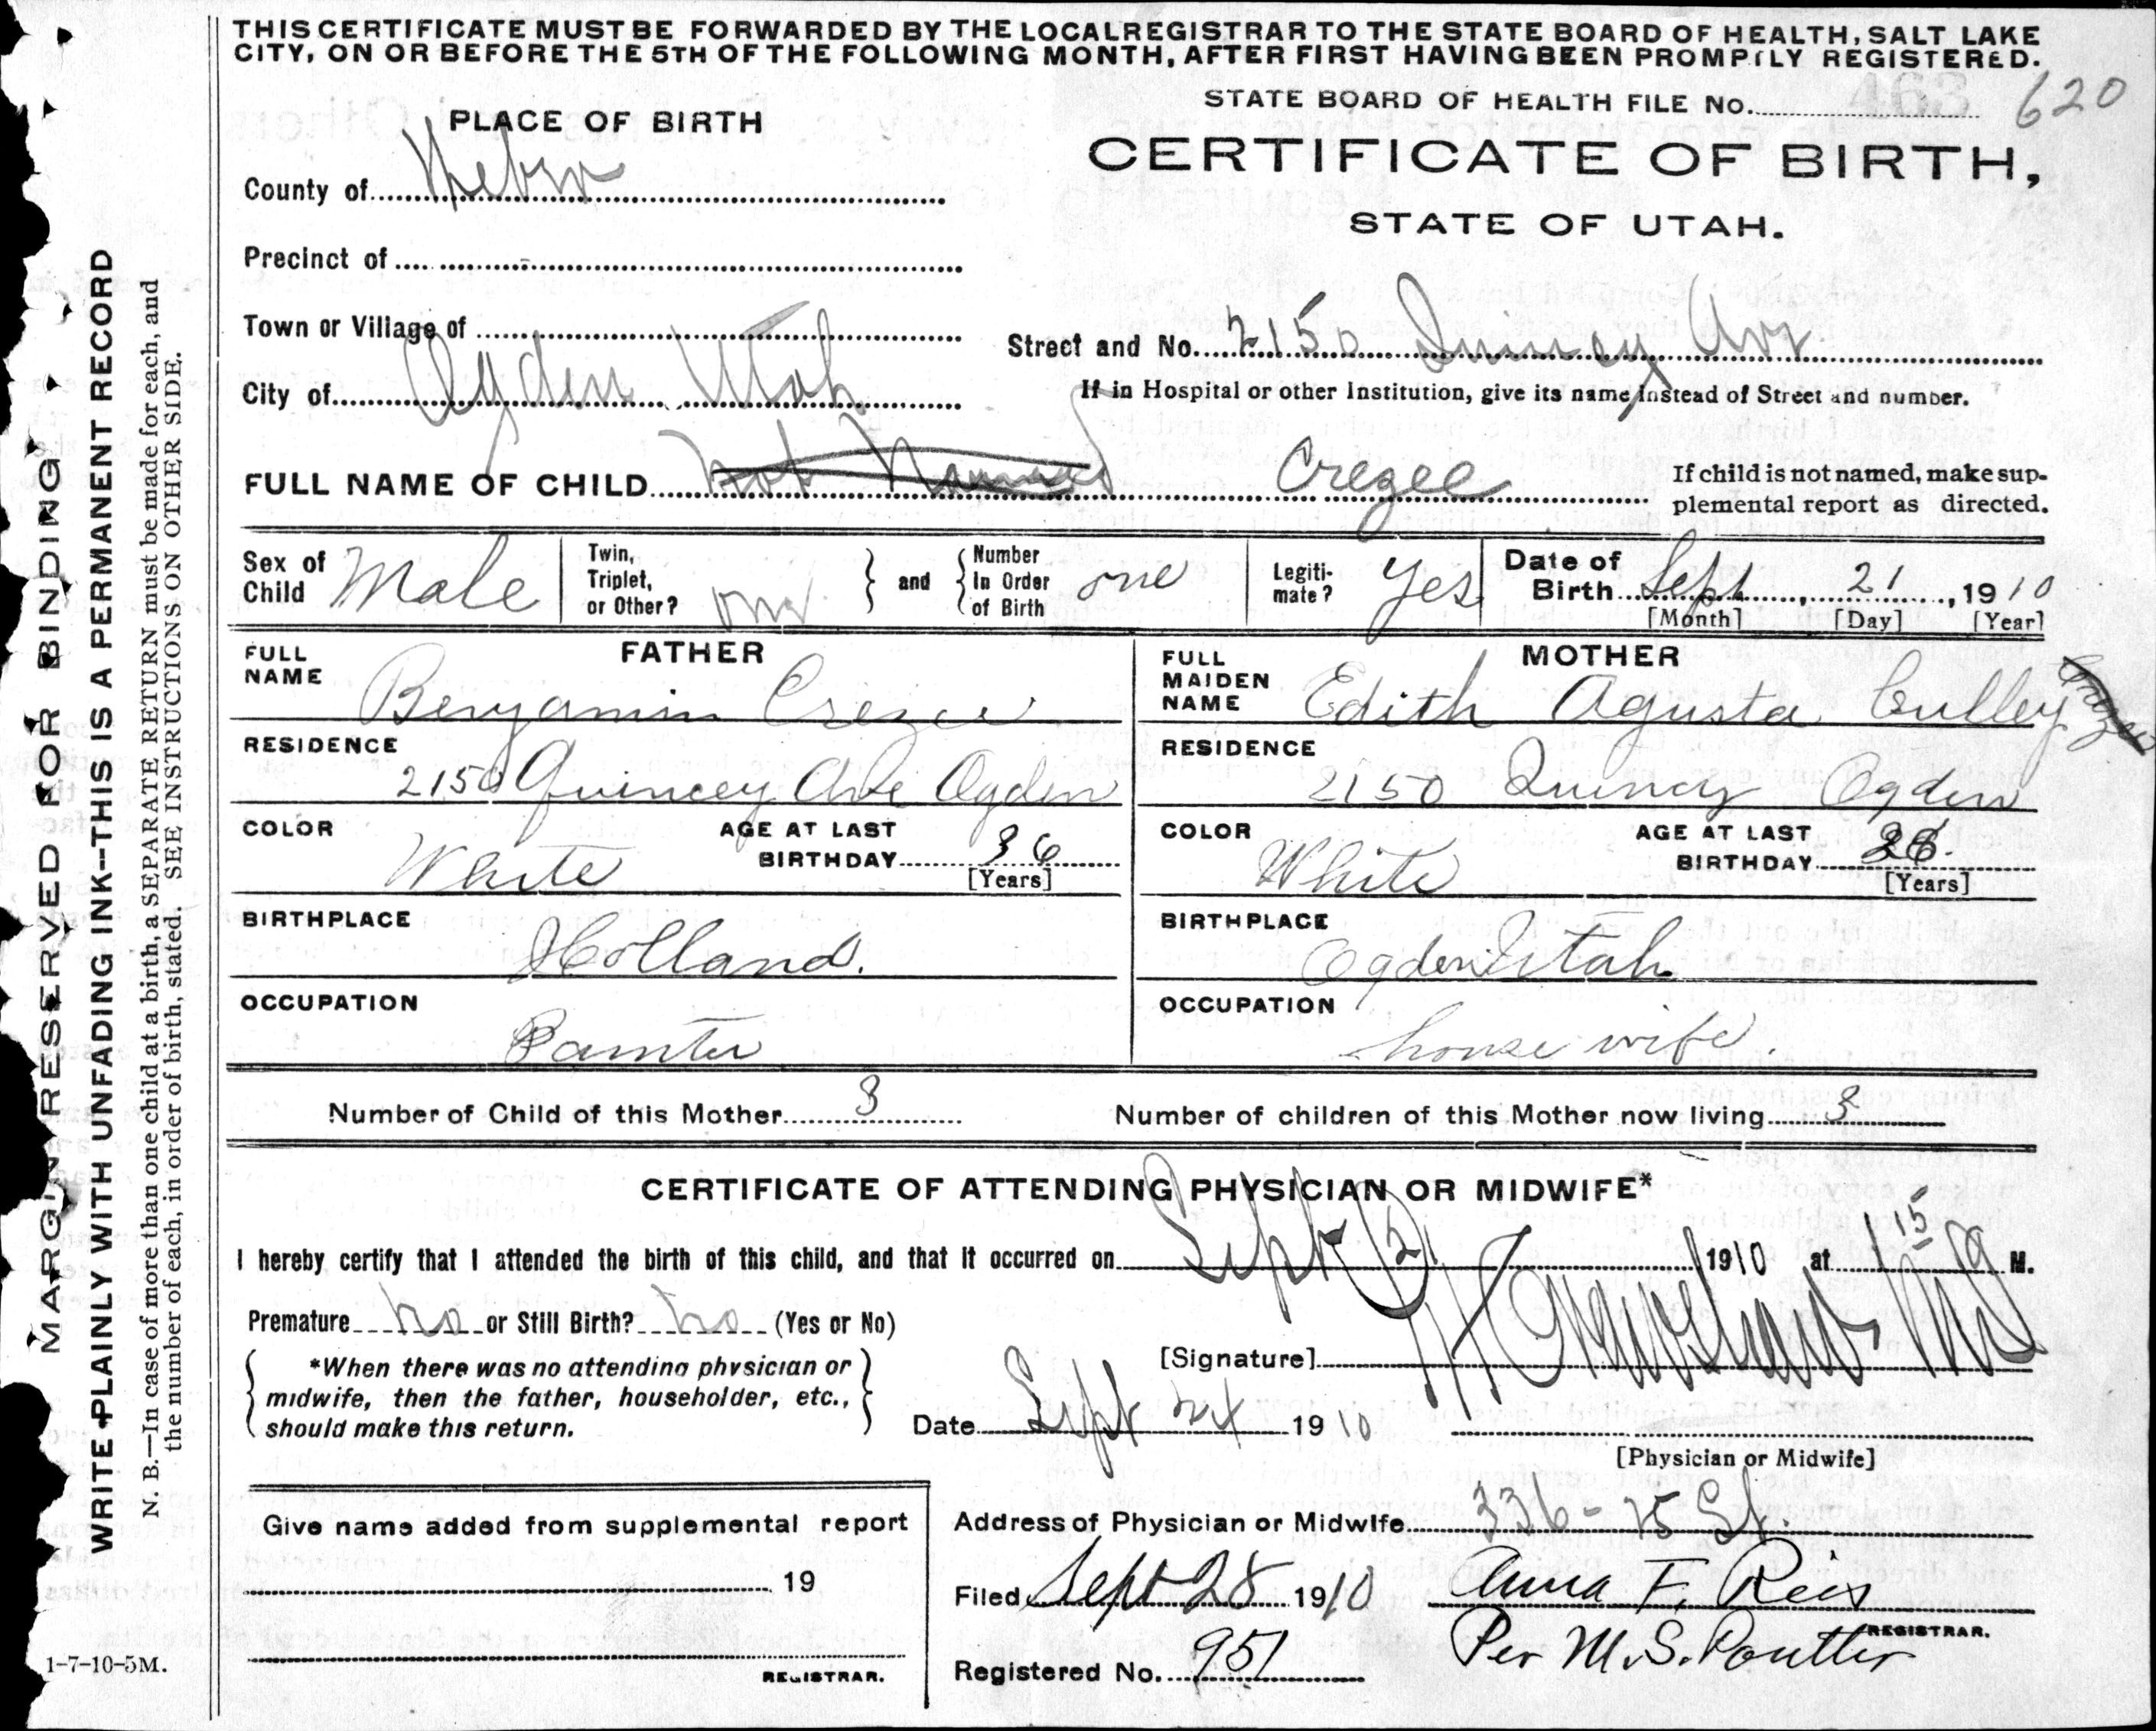 THIS CERTIFICATE MUST BE FORWARDED BY THE LOCAL REGISTRAR TO THE STATE BOARD OF HEALTH, SALT LAKE
CITY, ON OR BEFORE THE 5TH OF THE FOLLOWING MONTH, AFTER FIRST HAVING BEEN PROMPTLY REGISTERED.
STATE BOARD OF HEALTH FILE No. 463 620
PLACE OF BIRTH
CERTIFICATE OF BIRTH,
STATE OF UTAH.
County of Weber
Precinct of
Town or Village of
Street and No. 2150 Quincy Ave
City of Ogden Utah
If in Hospital or other Institution, give its name instead of Street and number.
FULL NAME OF CHILD not Named Crezee
If child is not named, make sup-
plemental report as directed.
Sex of Child Male
Twin, Triplet, or Other? one
and
Number In Order of Birth one
Legiti-mate? Yes
Date of Birth Sept 21, 1910
[Month] [Day] [Year]
FATHER
FULL NAME Benjamin Crezee
RESIDENCE
2150 Quincey Ave Ogden
COLOR White
AGE AT LAST BIRTHDAY 36
[Years]
BIRTHPLACE
Holland.
OCCUPATION
Painter
MOTHER
FULL MAIDEN NAME Edith Agusta Culley
RESIDENCE
2150 Quincy Ogden
COLOR White
AGE AT LAST BIRTHDAY
[Years]
BIRTHPLACE
Ogden Utah
OCCUPATION
house wife.
Number of Child of this Mother 3
Number of children of this Mother now living 3
CERTIFICATE OF ATTENDING PHYSICIAN OR MIDWIFE*
I hereby certify that I attended the birth of this child, and that it occurred on Sept 21 1910 at 1 15 a M.
Premature no or Still Birth? no (Yes or No)
*When there was no attending physician or
midwife, then the father, householder, etc.,
should make this return.
[Signature] MD
Date Sept 24 1910
[Physician or Midwife]
Give name added from supplemental report
19
REGISTRAR.
Address of Physician or Midwife 336-25 St.
Filed Sept 28 1910 Anna F. Reis
REGISTRAR.
Per M.S. Poulter
Registered No. 951
MARGIN RESERVED FOR BINDING
WRITE PLAINLY WITH UNFADING INK--THIS IS A PERMANENT RECORD
N. B.—In case of more than one child at a birth, a SEPARATE RETURN must be made for each, and
the number of each, in order of birth, stated. SEE INSTRUCTIONS ON OTHER SIDE.
1-7-10-5M.